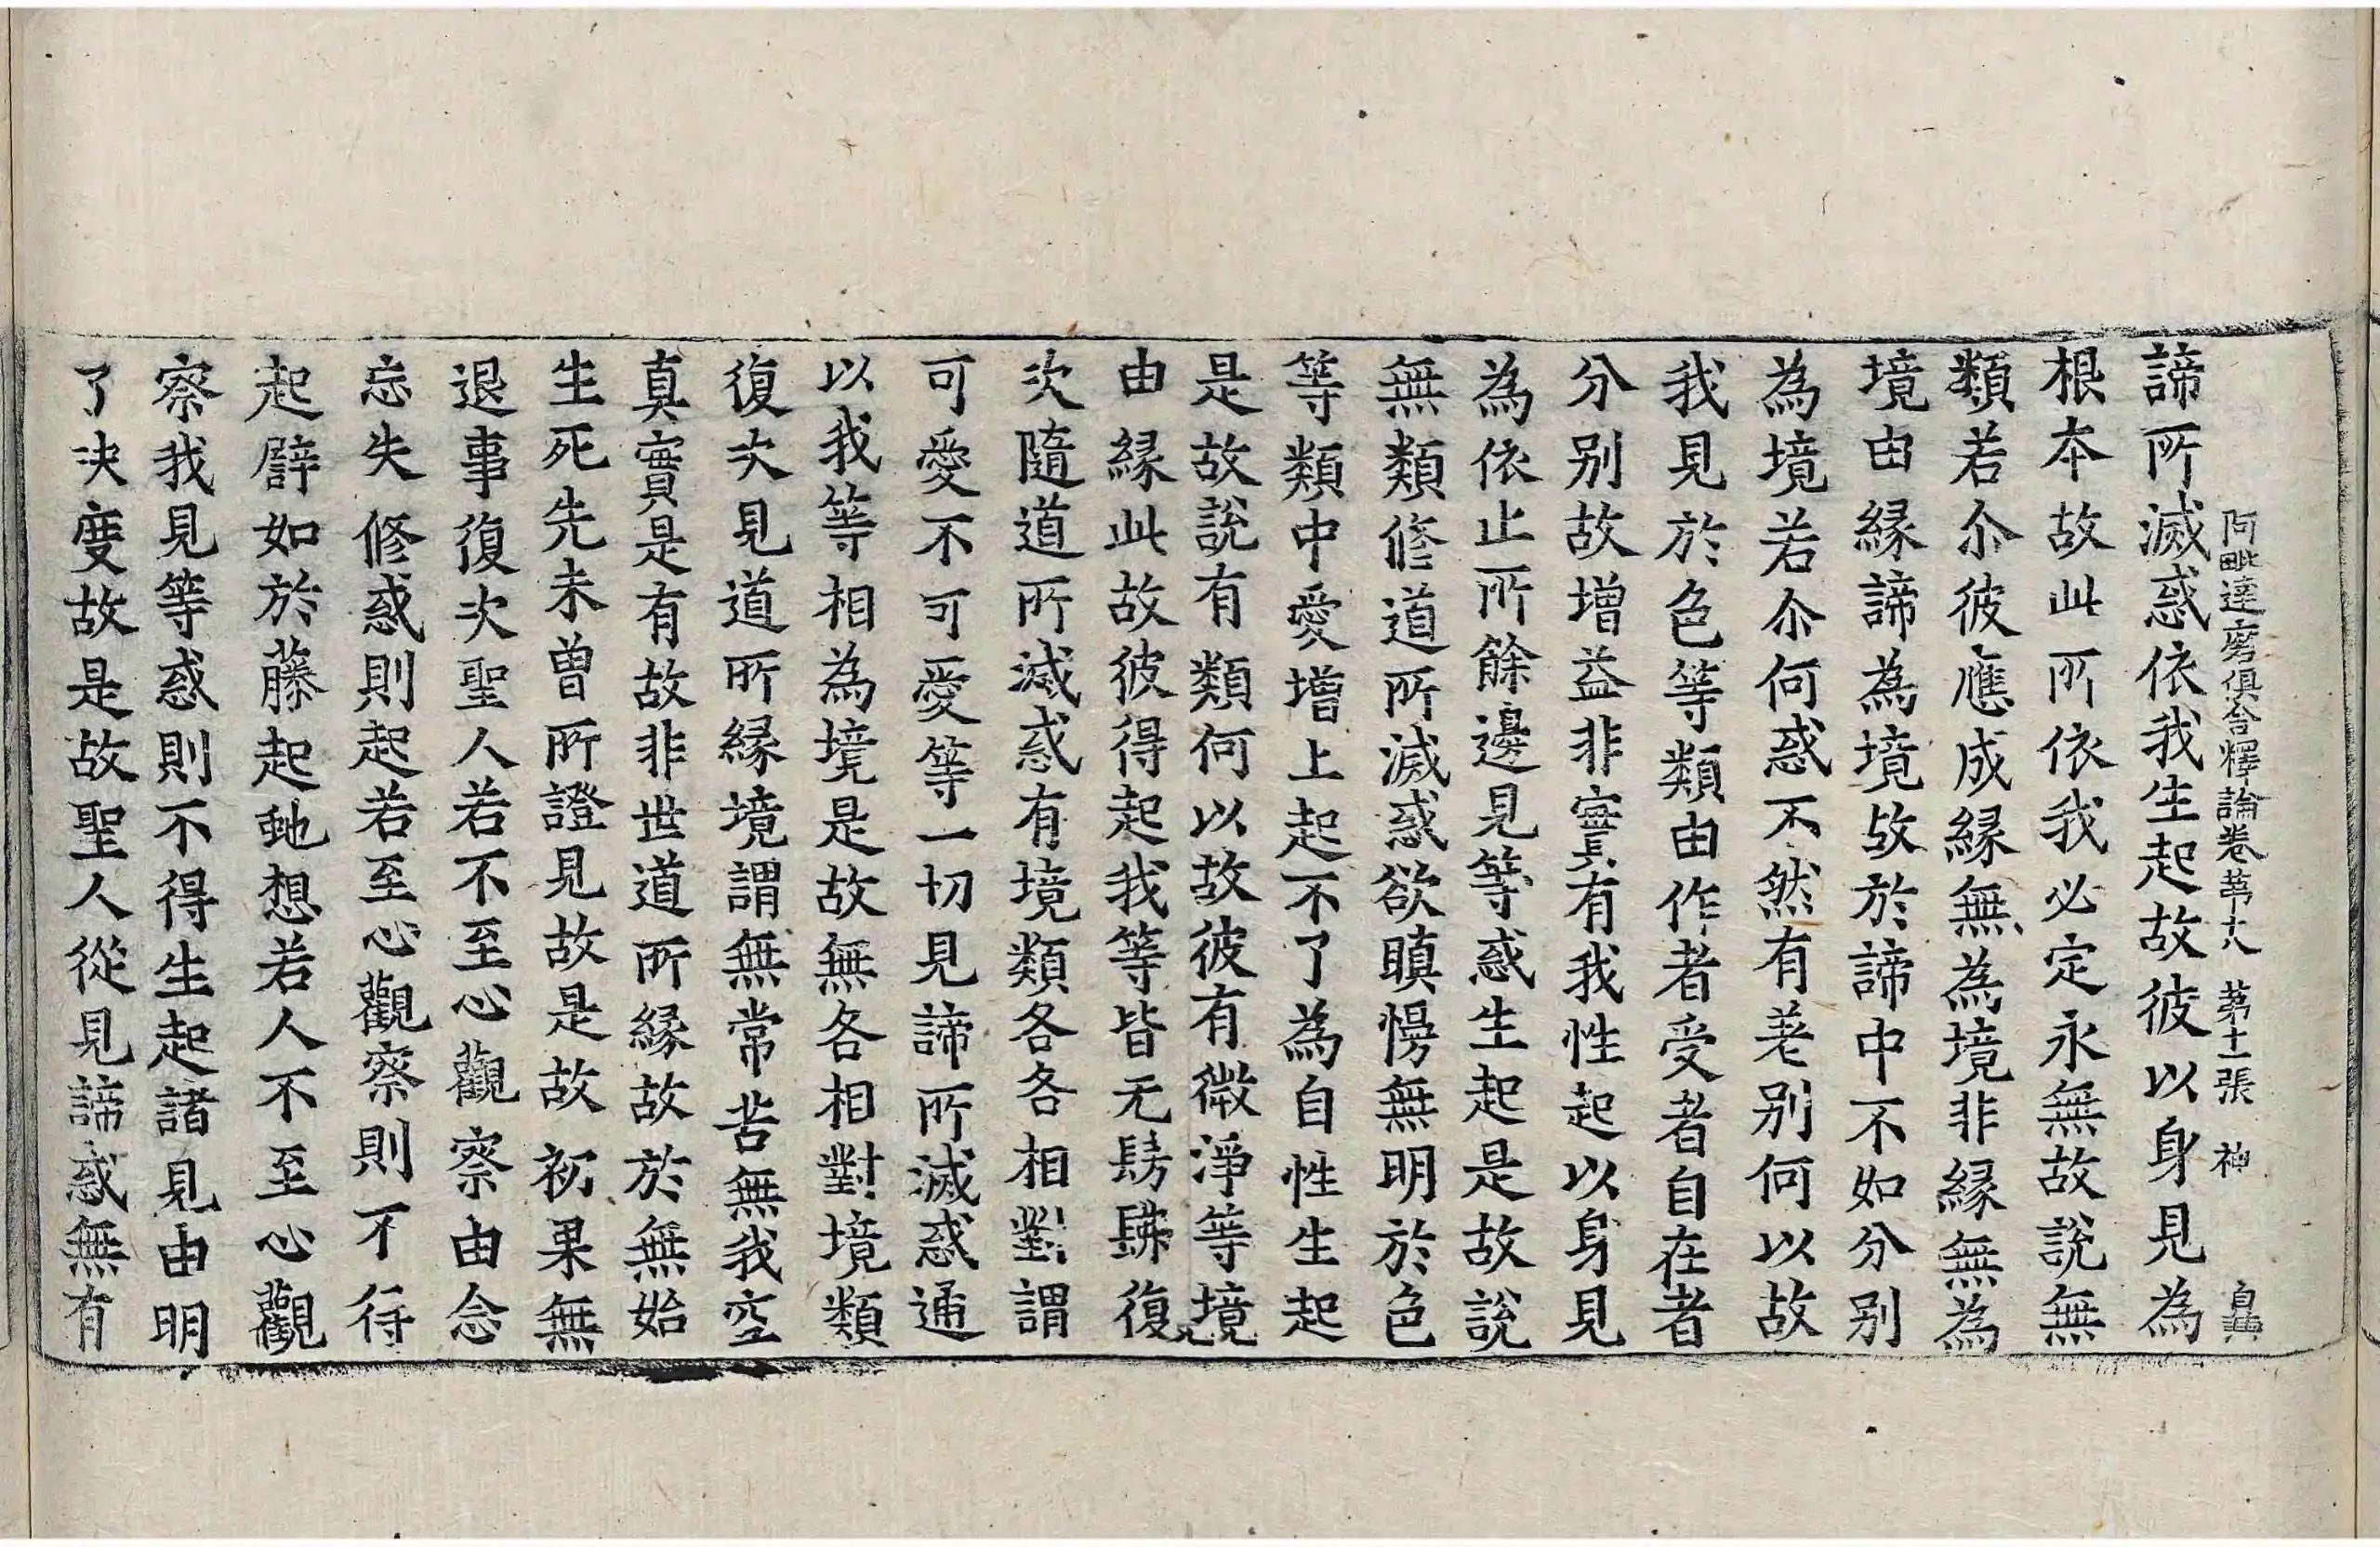 阿毗達磨俱舍釋論卷苐十八　苐十二張　神
諦所滅惑依我生起故彼以身見為
根本故此所依我必定永無故說無
類若尒彼應成緣無為境非緣無為
境由緣諦為境故於諦中不如分別
為境若尒何惑不然有差別何以故
我見於色等類由作者受者自在者
分別故增益非實有我性起以身見
為依止所餘邊見等惑生起是故說
無類修道所滅惑欲瞋慢無明於色
等類中愛增上起不了為自性生起
是故說有類何以故彼有微淨等境
由緣此故彼得起我等皆无髣髴復
次隨道所滅惑有境類各各相對謂
可愛不可愛等一切見諦所滅惑通
以我等相為境是故無各相對境類
復次見道所緣境謂無常苦無我空
真實是有故非世道所緣故於無始
生死先未曾所證見故是故初果無
退事復次聖人若不至心觀察由念
忘失修惑則起若至心觀察則不得
起辟如於藤起虵想若人不至心觀
察我見等惑則不得生起諸見由明
了決度故是故聖人從見諦惑無有